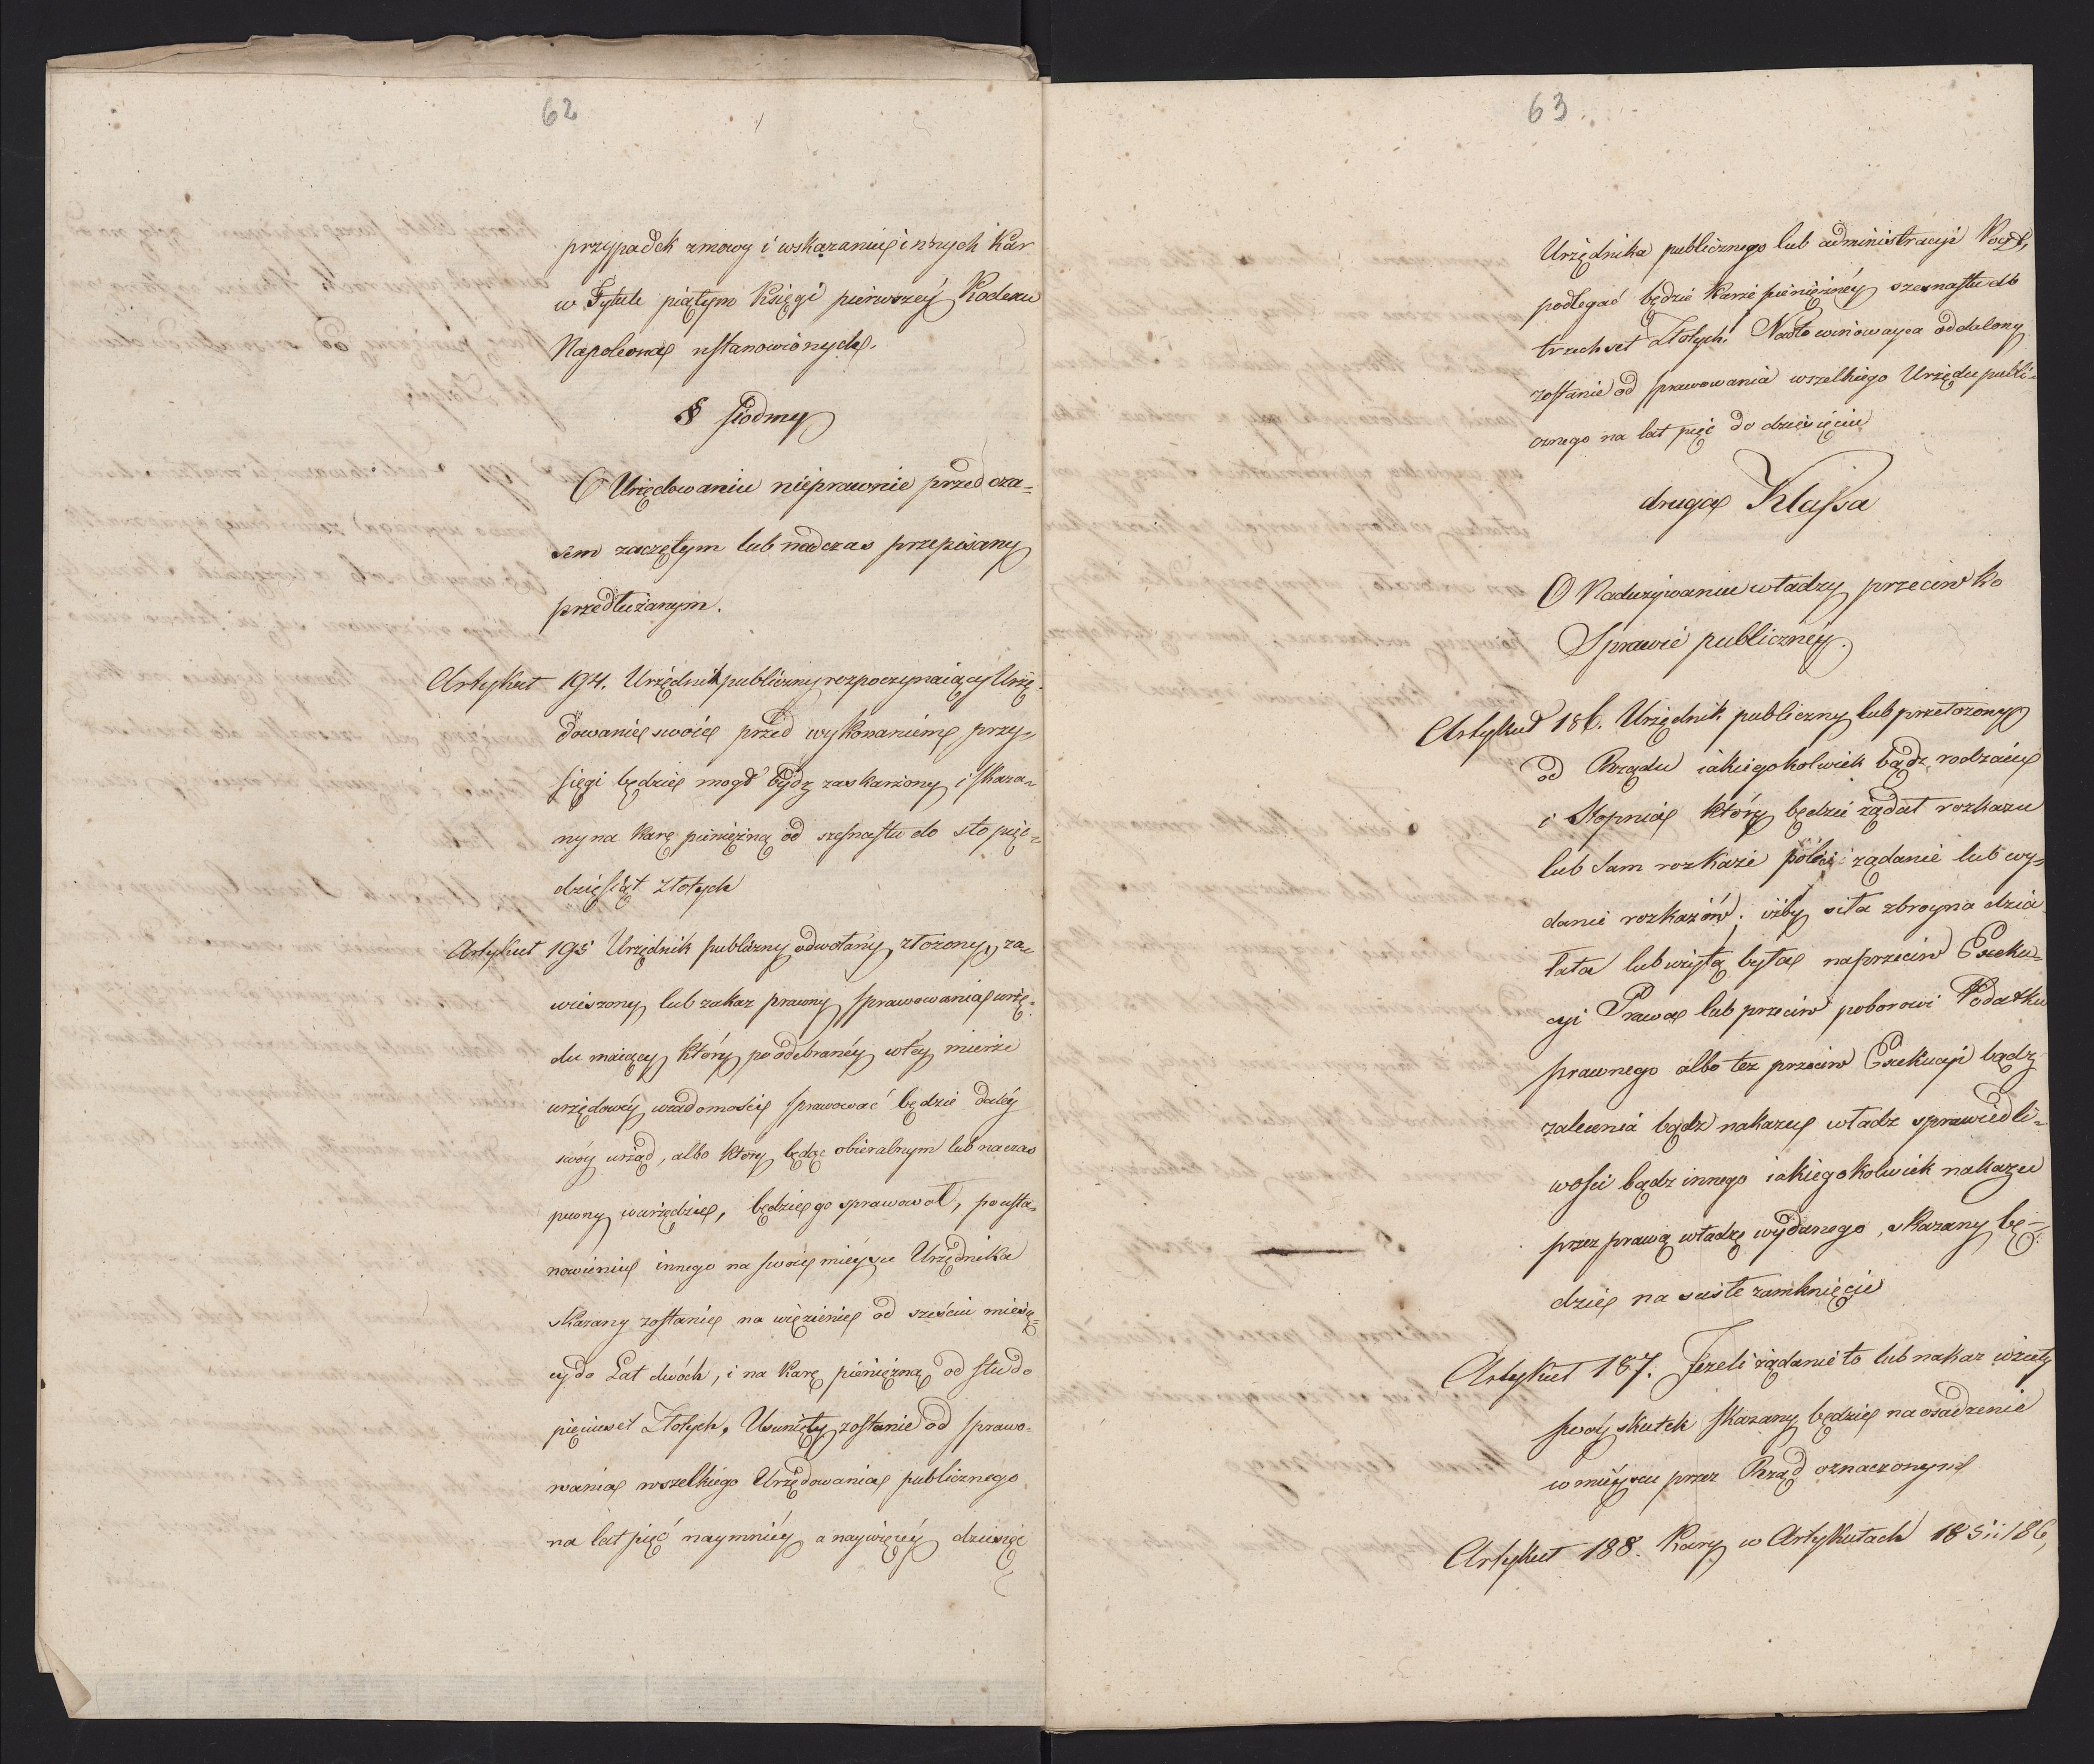 62
przypadek zmowy i wskazanie innych Kar
w Tytule piątym Księgi pierwszey Kodexu
Napoleona ustanowionych.
§ siodmy
O Urzędowaniu nieprawnie przed cza=
sem zaczętym lub nad czas przepisany
przedłużanym.
Artykuł 194. Urzędnik publiczny rozpoczynaiący Urzę=
dowanie swoie przed wykonaniem przy=
sięgi będzie mogł bydz zaskarżony i skaza=
ny na karę pieniężną od szesnastu do sto pięć=
dziesiąt złotych
Artykuł 195 Urzędnik publiczny odwołany, złożony, za=
wieszony lub zakaz prawny sprawowania urzę=
du maiący, który po odebraney w tey mierze
urzędowey wiadomości sprawować będzie daley
swóy urząd, albo który będąc obieralnym lub na czas
pewny w urzędzie, będzie go sprawował, po usta=
nowieniu innego na swoie mieysce Urzędnika
skazany zostanie na więzienie od sześciu miesię=
cy do Lat dwóch, i na karę pieniężną od stu do
pięciuset Złotych, Usunięty zostanie od sprawo=
wania wszelkiego Urzędowania publicznego
na lat pięć naymniey a naywięcey dziesięć
63.
Urzędnika publicznego lub administracyi Poczt,
podlegać będzie karze pieniężney szesnastu do
trzechset Złotych. Nadto winowayca oddalony
zostanie od sprawowania wszelkiego Urzędu publi=
cznego na lat pięć do dziesięciu
druga Klassa
O Nadużywaniu władzy przeciwko
Sprawie publiczney.
Artykuł 186. Urzędnik publiczny lub przełożony
od Rządu iakiegokolwiek bądz rodzaiu
i Stopnia który będzie żądał rozkazu
lub sam rozkaże poleci żądanie lub wy=
danie rozkazów; iżby siła zbroyna dzia
łała lub użytą była naprzeciw Exeku=
cyi Prawa lub przeciw poborowi Podatku
prawnego albo też przeciw Exekucyi bądz
zalecenia bądz nakazu władz sprawiedli=
wości bądz innego iakiegokolwiek nakazu
przez prawą władzę wydanego, skazany bę=
dzie na ścisłe zamknięcie
Artykuł 187. Jeżeli żądanie to lub nakaz wzięły
swóy skutek skazany będzie na osadzenie
w mieyscu przez Rząd oznaczonym
Artykuł 188. Kary w Artykułach 185 i 186,